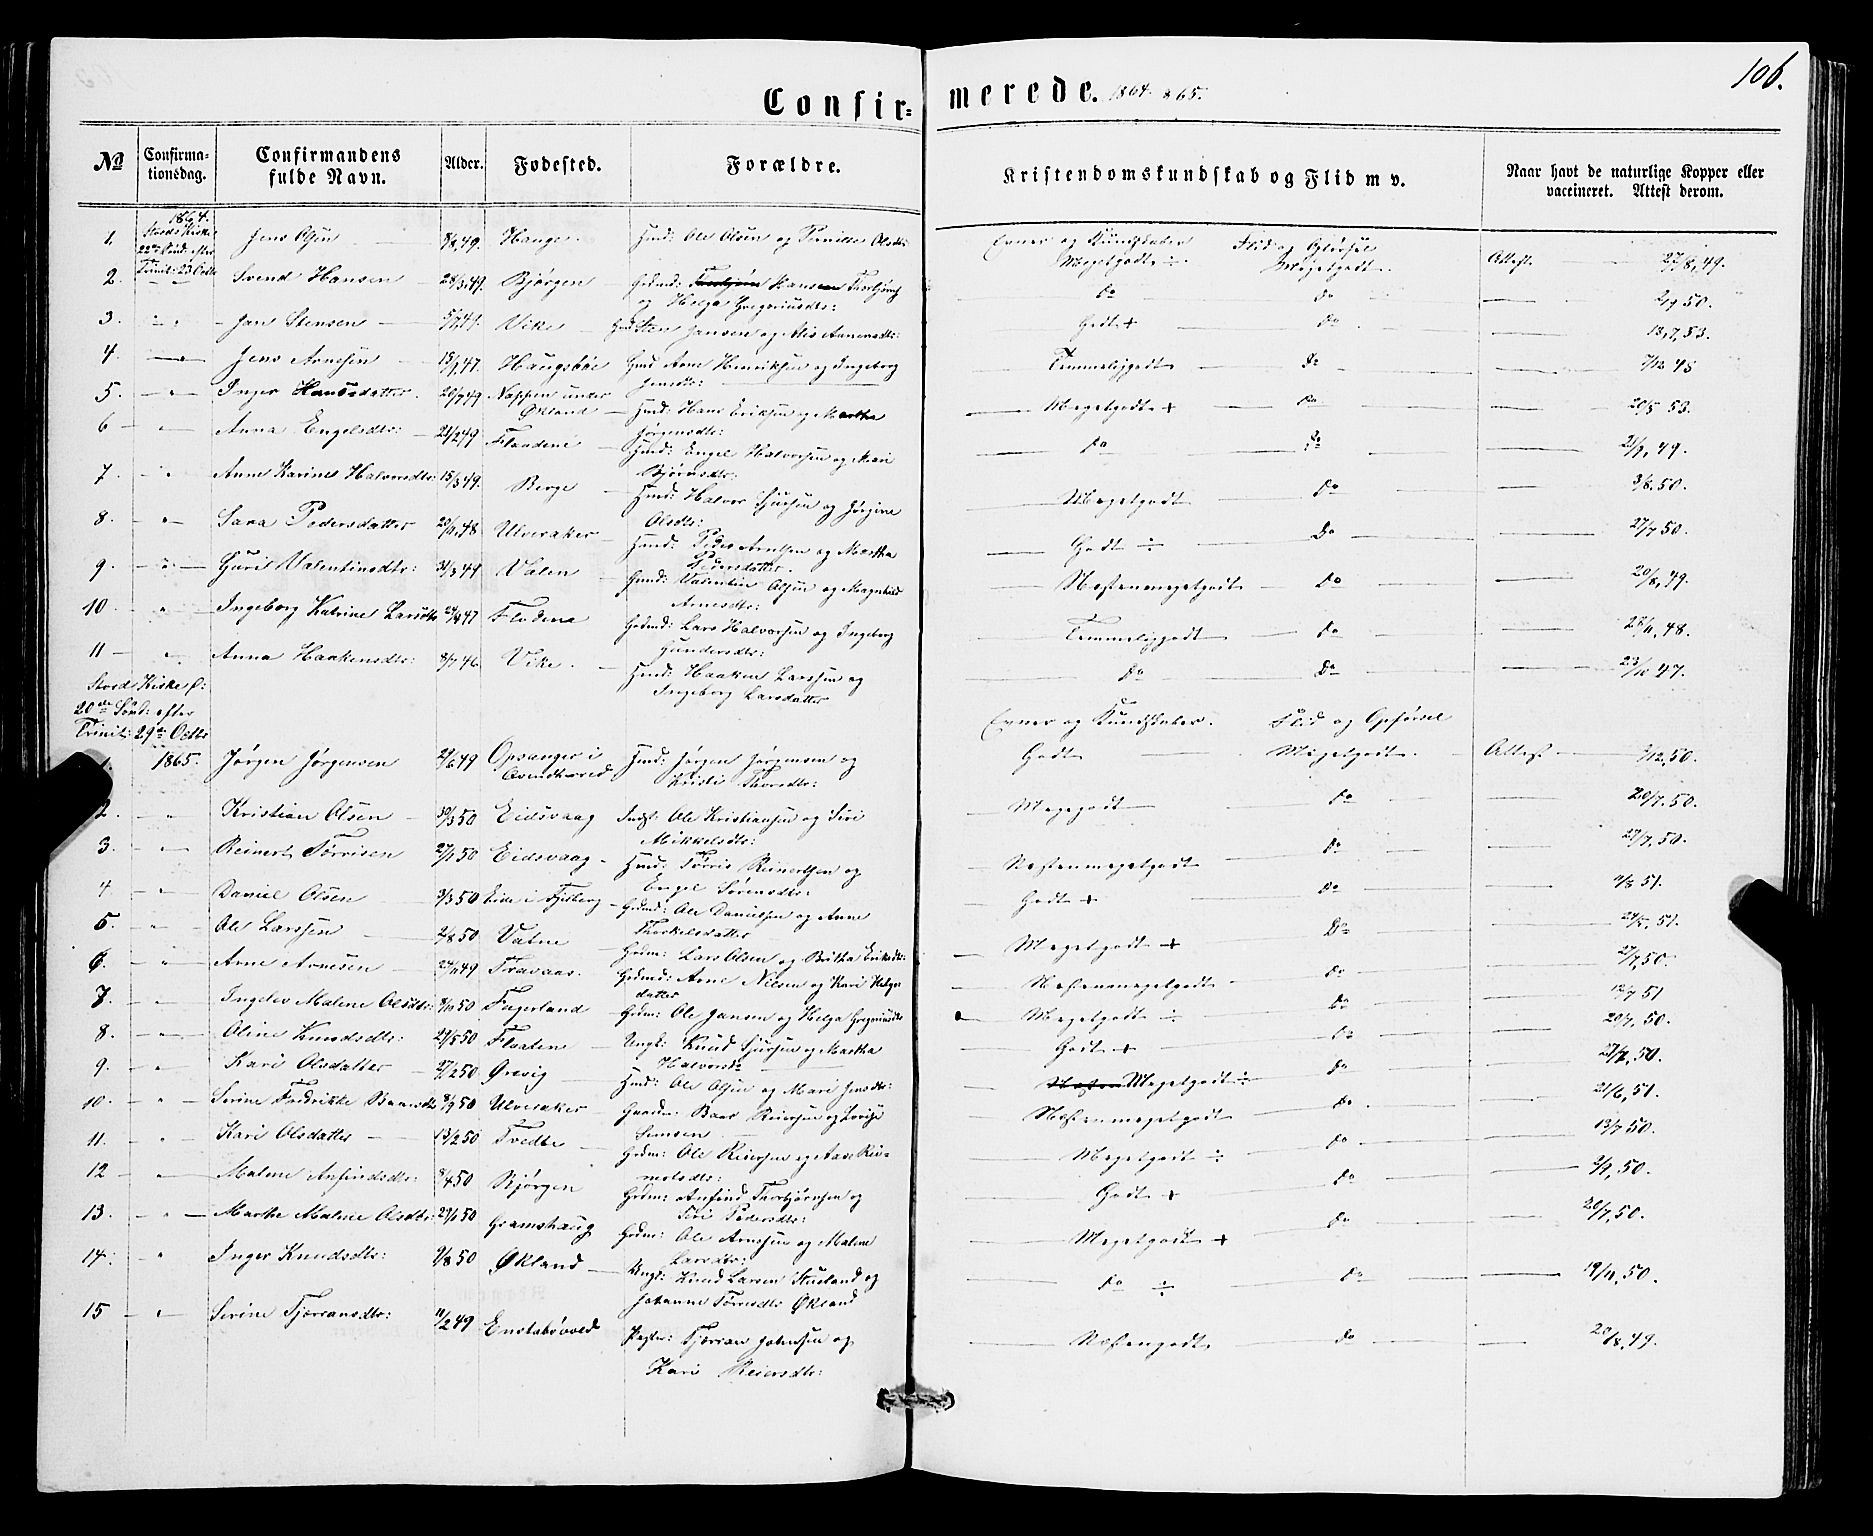 106.
Confir= merede. 1864. & 65.
No Confirma- tionsdag. Confirmandens fulde Navn. Alder. Fødested. Forældre. Kristendomskundskab og Flid m v. Naar havt de naturlige Kopper eller vaccineret. Attest derom.
1864.
Stords Kirke
22de Sønd: efter
Trinit: 23 Octbr
Evner og Kundskaber Flid og
1. Jens Olsen 49. Hauge. Gmd: Ole Olsen og Pernille Olsdtr: Megetgodt ÷. Megetgodt. Attest. 27/8, 49.
2. Svend Hansen 28/3 49. Bjørgen Gdmd: Hans
og Helga Gregoriusdtr: Do Do 50.
3. Jan Stensen Vike Sten Jansen og Annensdtr: Godt + Do 13/7, 53.
4. Jens Arnesen 15/9 47. Haugsbøe Gmd Arne Henriksen og Ingeborg
Jensdtr: Temmeligodt Do 7/12 48
5. Inger Hansdatter. 20/7 49 Nappen under
Økland Hmd: Hans Eriksen og Martha
Jørgensdtr: Megetgodt + Do 20/5 53.
6 Anna Engelsdtr: 21/2 49 Flaadene Hmd: Engel Halvorsen og Mari
Bjørnsdtr: Do Do 21/9, 49.
7. Anne Karine Halvorsdtr: 15/3 49. Berge Hmd: Halvor Sjursen og Jørgine
Olsdtr: Megetgodt Do 3/6. 50.
8. Sara Pedersdatter 20/11 48 Ulveraker Hmd: Peder Arnesen og Martha
Pedersdatter. Godt ÷ Do 27/7 50.
9. Guril Valentinsdtr: 31/3 49 Valen Gmd: Valentin Olsen og Magnhild
Arnesdtr: Næstenmegetgodt Do 20/8, 49.
10. Ingeborg Katrine Larsdtr 47 Flodene Gdmd: Lars Halvorsen og Ingeborg
Gundersdtr: Temmeligodt Do 28/11, 48.
11 Anna Haakensdtr: 8/7 46. Vike. Hmd: Haaken Larsen og
Ingeborg Larsdatter Do Do 23/10 47.
Stord Kirke d:
20de Sønd: efter
Trinit: 29de Octbr
1865.
Evner og Kundskaber. Flid og Opførsel
1. Jørgen Jørgensen 21/6 49 Opsanger i
Qvindherred Hmd: Jørgen Jørgensen og
Kristi Thorsdtr: Godt Megetgodt. Attest 50.
2. Kristian Olsen 30/3 50 Eidsvaag Indst: Ole Kristiansen og Siri
Mikkelsdtr: Megegodt Do 20/7. 50.
3. Reinert Tørrisen 27/1 50 Eidsvaag Hmd: Tørris Reinertsen og
Engel Sørensdtr: Næstenmegetgodt Do 27/7, 50.
4 Daniel Olsen 3/3 50 Eide i Fjelberg Gdmd: Ole Danielsen og Anne
Thorkelsdatter Godt + Do 51.
5. Ole Larssen 2/8 50 Vatne Gdm: Lars Olsen og Britha Eriksdtr: Megetgodt + Do 51.
6. Arne Arnesen 24/11 49 Travaas. Gdmd: Arne Nilsen og Kari Helge
datter Næstenmegetgodt Do 27/7, 50.
7. Ingelev Malene Olsdtr: 50 Fugerland Gdm: Ole Jansen og Helga Gregoriusdtr Megetgodt ÷ Do 13/7 51
8. Oline Knudsdtr: 21/5 50 Flaaten Ungk: Knud Sjursen og Martha
Halvorsdr Godt + Do 20/7, 50.
9. Kari Olsdatter 27/2 50 Ørevig Hmd: Ole Olsen og Mari Jensdtr: Megetgodt ÷ Do 50.
10. Serine Fredrikke Baarsdtr 50 Ulveraker Gaardm: Baar Reiersen og Lovise
Simsen Næstenmegetgodt Do 21/6, 51.
11. Kari Olsdatter 13/2 50 Tvedte Gdm: Ole Reiersen og Aase Rei-
mersdtr: Megetgodt ÷ Do 13/7 50.
12 Malene Anfindsdtr: 8/4 50 Bjørgen Gdm: Anfind Thorbjørnsen og
Siri Pedersdtr: Godt + Do 50.
13. Marthe Malene Olsdtr: 23/1 50 Gramshaug Gdm: Ole Arnesen og Malene
Larsdtr: Megetgodt + Do 50.
14. Inger Knudsdtr: 9/8 50 Økland Ungk: Knud Larsen Stueland og
Johanne Tørrisdtr Økland Do ÷ Do 19/11, 50.
15 Serine Tjerransdtr: 11/2 49 Enstabøvold Pagter: Tjerran Johnsen og
Kari Reiersdtr: Næstengodt Do 20/8, 49.